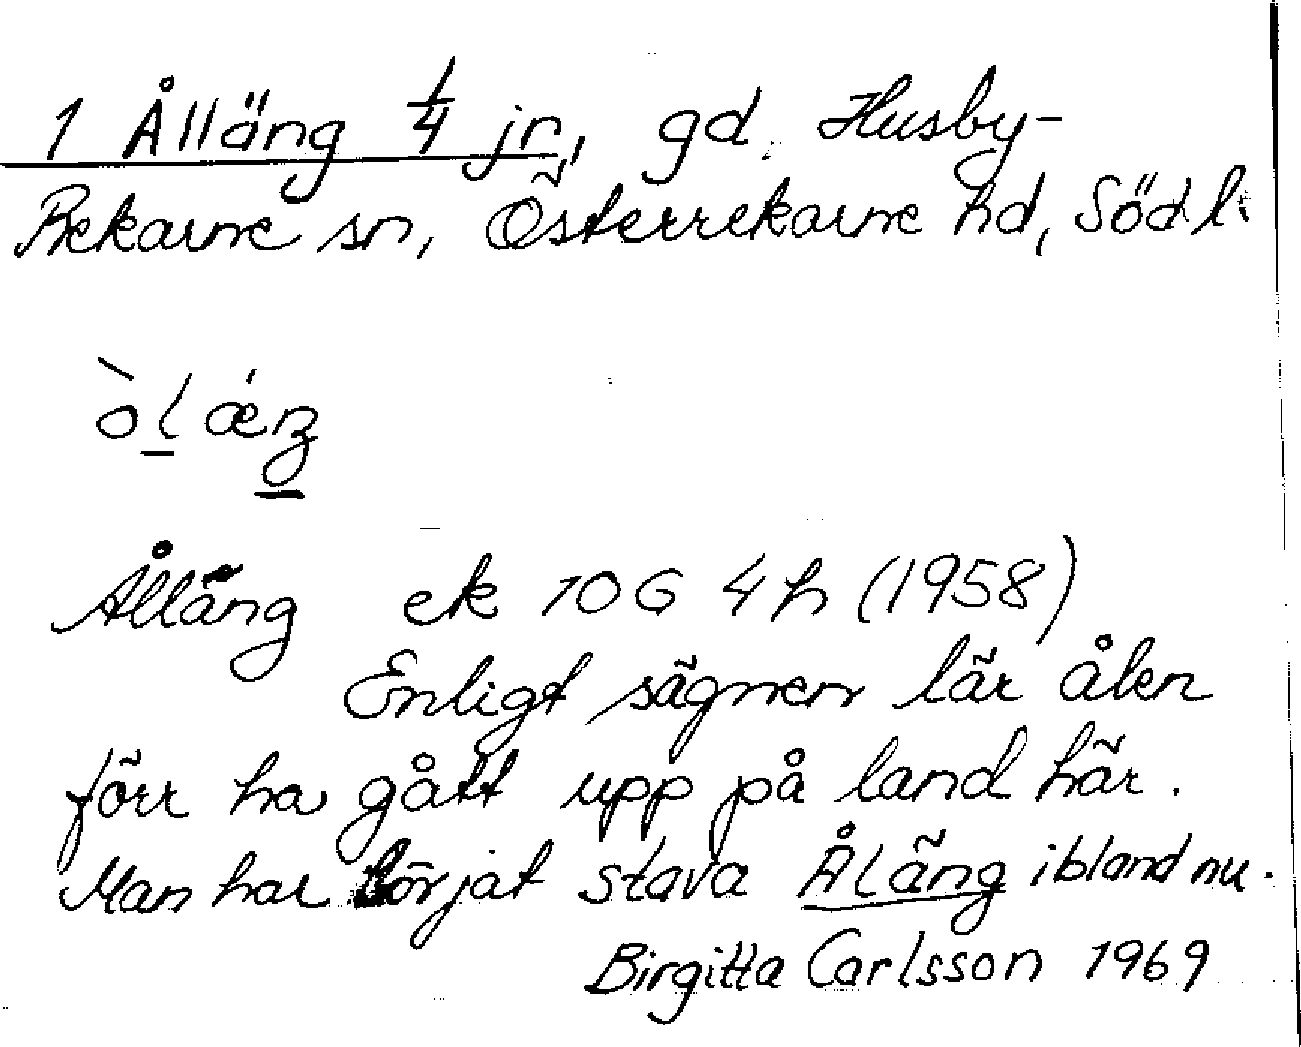 1 Ålläng 1/4 jr, gd, Husby-
Rekarne sn, Österrekarne hd, Södl.
òlǽŋ
Ålläng ek 10G 4h (1958)
Enligt sägnen lär ålen
förr ha gått upp på land här.
Man har börjat stava Åläng ibland nu.
Birgitta Carlsson 1969